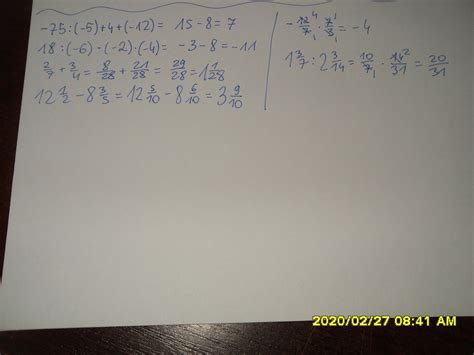 -75:(-5)+4+(-12)= 15-8=7
18:(-6)-(-2)·(-4)= -3-8=-11
2/7+3/4=8/28+21/28=29/28=1 1/28
12 1/2-8 3/5=12 5/10-8 6/10=3 9/10
-12⁴/7₁·7¹/3₁=-4
1 3/7:2 3/14=10/7₁·14²/31=20/31
2020/02/27 08:41 AM